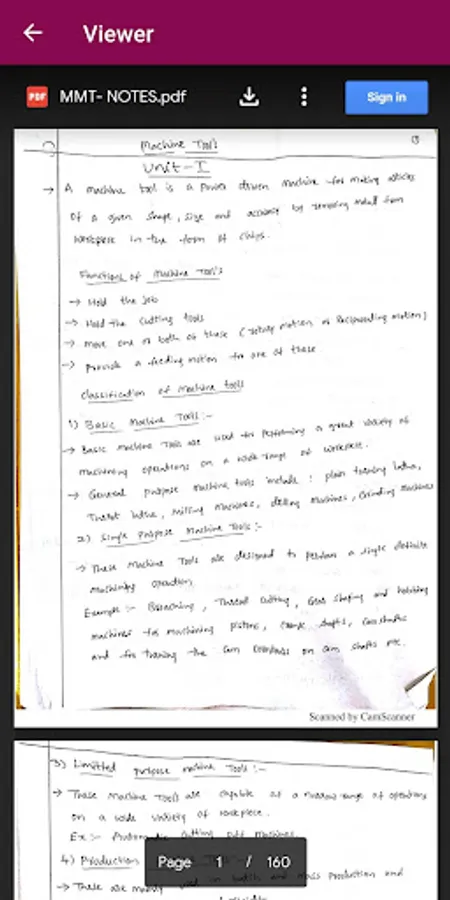 Viewer
PDF MMT- NOTES.pdf Sign in
Machine Tools
Unit-I
→ A machine tool is a power driven machine for making articles
of a given shape, size and accuracy by removing metal from
workpiece in the form of chips.
Functions of Machine Tools
→ Hold the job
→ Hold the cutting tools
→ Move one or both of these (rotary motion or Reciprocating motion)
→ Provide a feeding motion for one of these
Classification of Machine tools
1) Basic Machine Tools :-
→ Basic Machine Tools are used for performing a great variety of
Machining operations on a wide range of workpiece.
→ General purpose machine tools include : plain turning lathe,
Turret lathe, Milling Machines, drilling Machines, Grinding Machines
2) Single Purpose Machine Tools :-
→ These Machine Tools are designed to perform a single definite
machining operation
Example :- Broaching, Thread cutting, Gear shaping and hobbing
machines for machining pistons, crank shafts,
and for turning the cam on cam shafts etc.
Scanned by CamScanner
3) Limitted purpose machine Tools :-
→ These Machine Tools are capable of a narrow range of operations
on a wide variety of workpiece.
Ex :- Automatic cutting off machines
4) Production
Page 1 / 160
→ These are mostly used in batch and mass production and